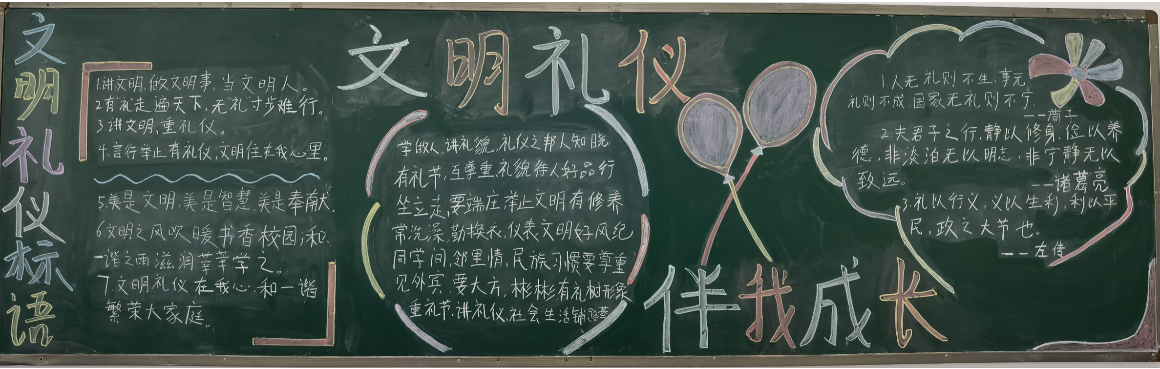 文明礼仪标语
1.讲文明,做文明事,当文明人。
2.有礼走遍天下,无礼寸步难行。
3.讲文明,重礼仪。
4.言行举止有礼仪,文明住在我心里。
5.美是文明,美是智慧,美是奉献。
6.文明之风吹暖书香校园,和
谐之雨滋润莘莘学之。
7.文明礼仪在我心,和一谐
繁荣大家庭。
文明礼仪
学做人,讲礼貌,礼仪之邦人知晓
有礼节,互尊重,礼貌待人好品行
坐立走,要端庄,举止文明有修养
常洗澡,勤换衣,仪表文明好风纪
同学间,邻里情,民族习惯要尊重
见外宾,要大方,彬彬有礼树形象
重礼节,讲礼仪,社会生活
伴我成长
1.人无礼则不生,事无
礼则不成,国家无礼则不宁。
——荀子
2.夫君子之行,静以修身,俭以养
德,非淡泊无以明志,非宁静无以
致远。
——诸葛亮
3.礼以行义,义以生利,利以平
民,政之大节也。
——左传